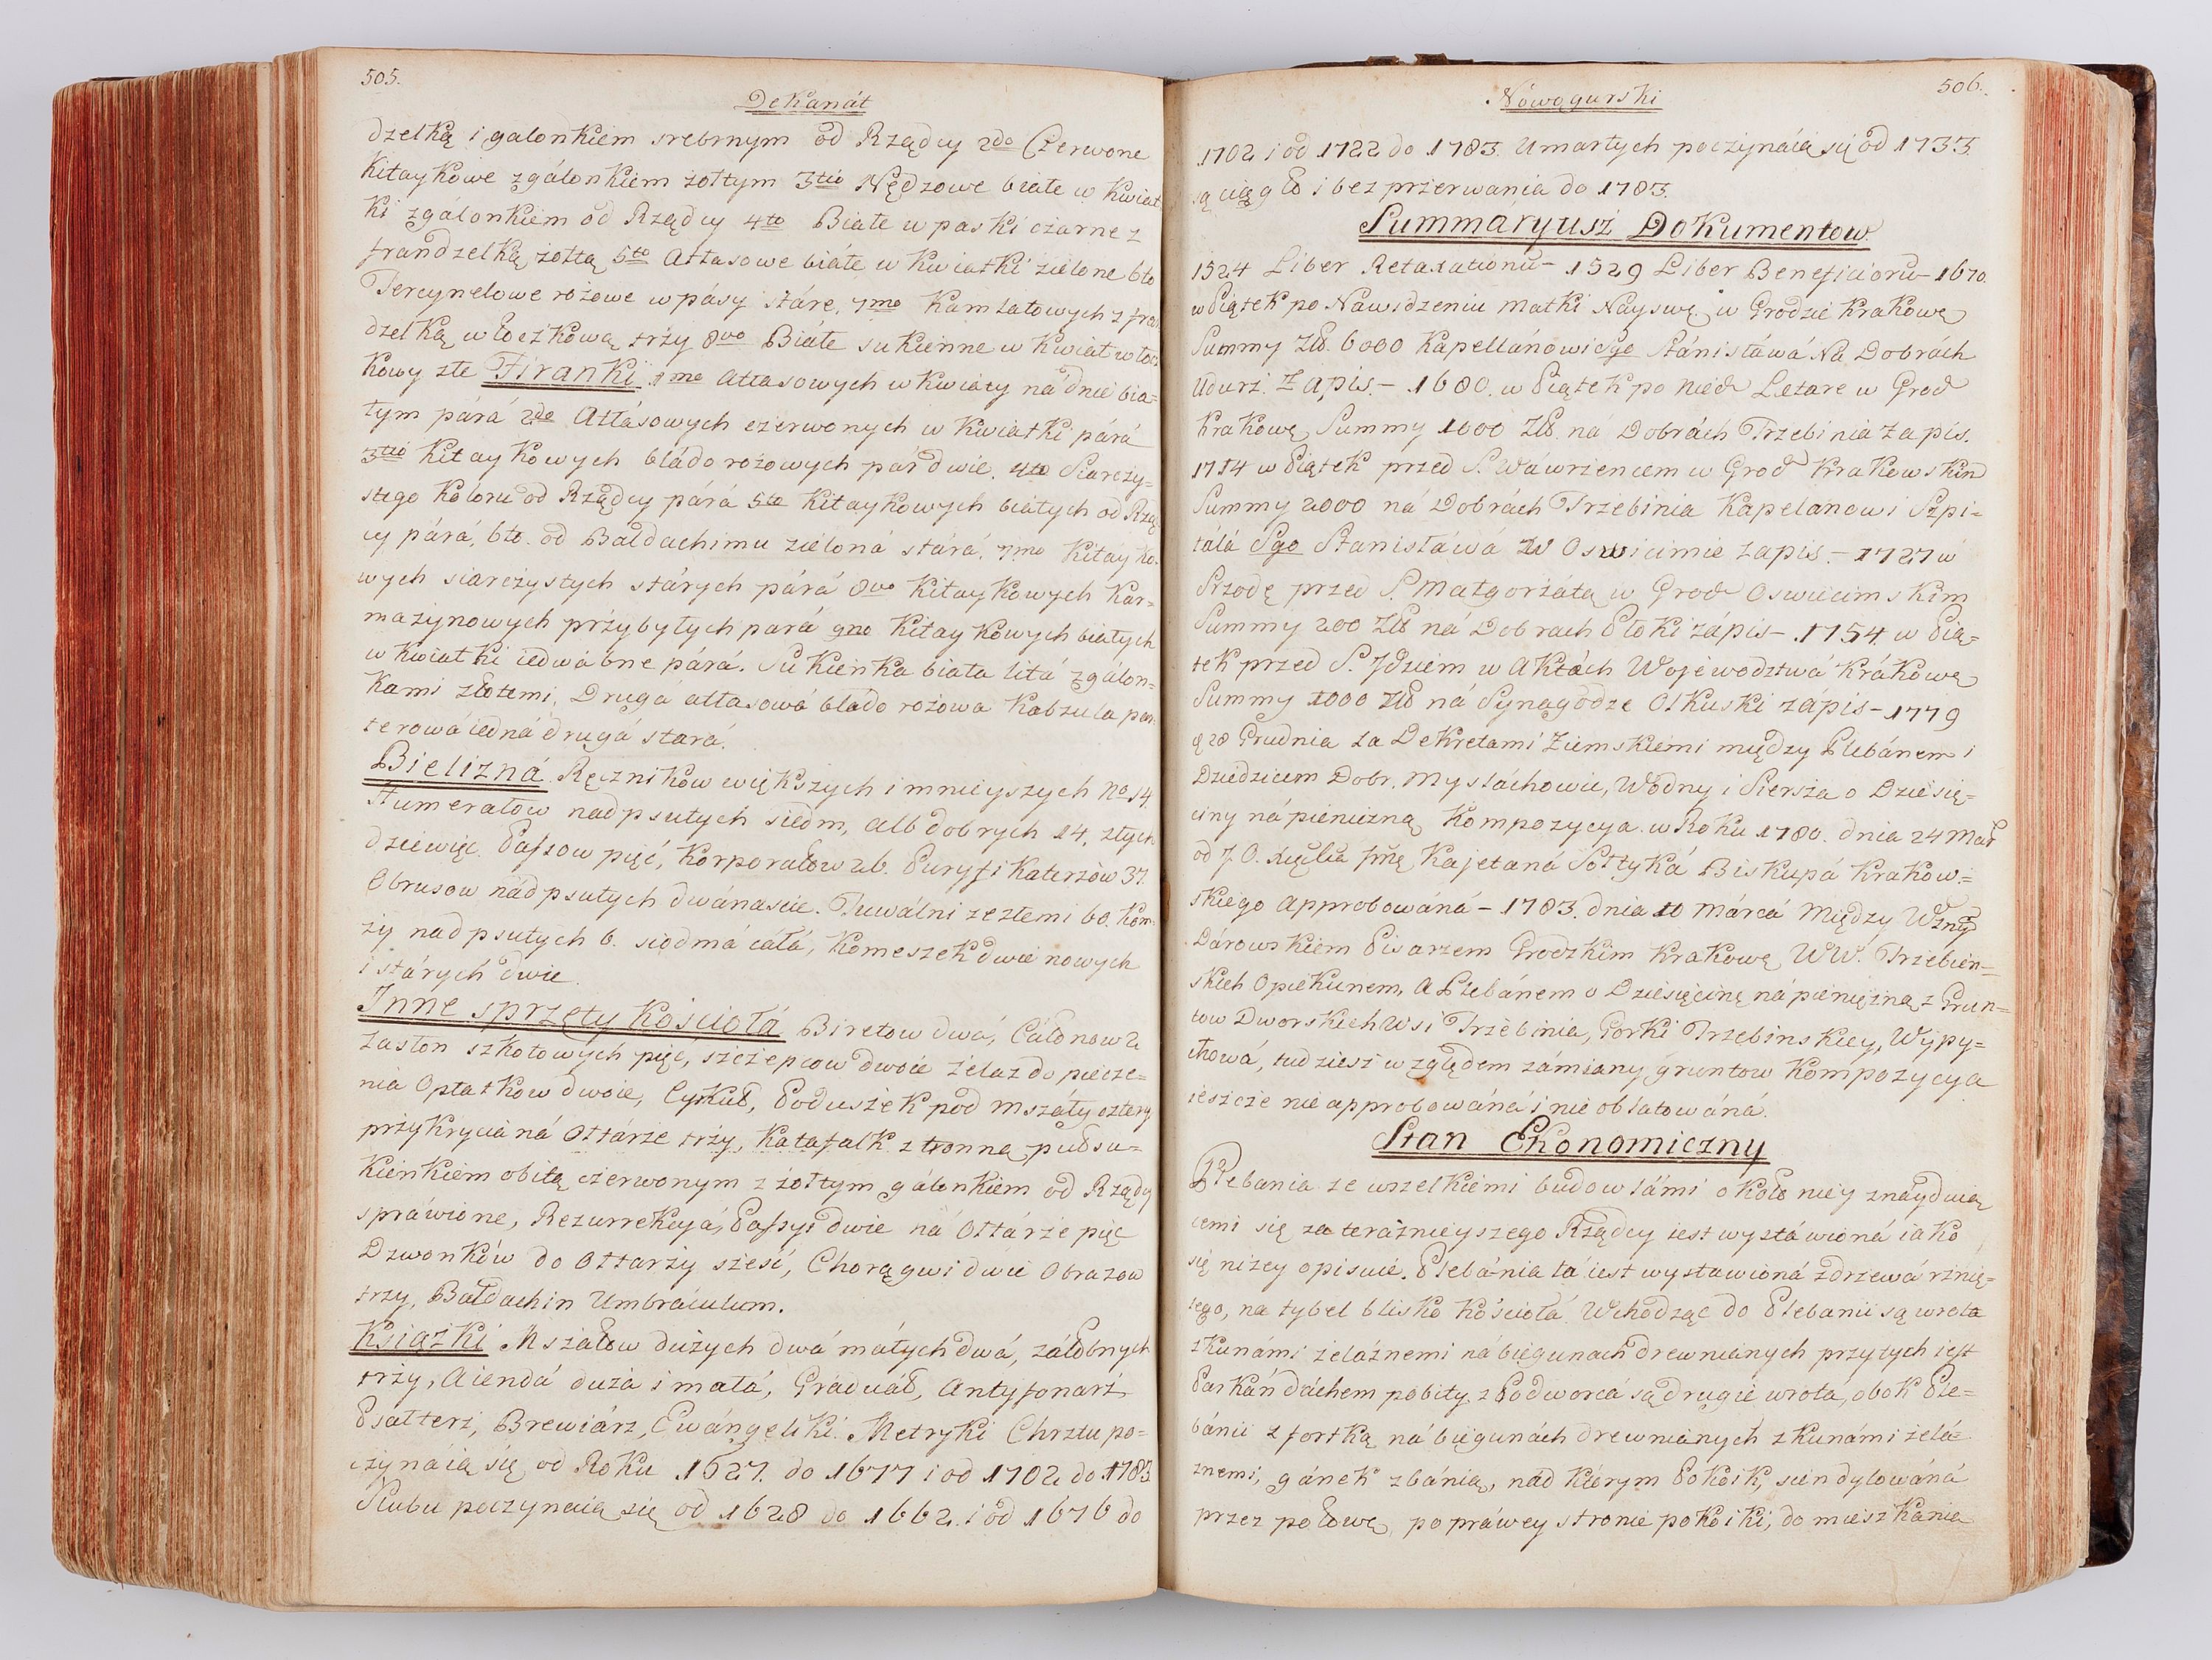 505.
Dekanát
dzelką i galonkiem srebrnym od Rządcy 2do Czerwone
Kitaykowe zgálonkiem żołtym 3tio Nędzowe białe w kwiat
ki zgálonkiem od Rządcy 4to Białe w paski czarne z
frandzelką żołtą 5to Atłasowe białe w kwiatki zielone 6to
Tercynelowe rożowe w pásy stáre, 7mo Kamlatowych z fran
dzelką włoczkową trzy 8vo Białe sukienne w kwiat włocz
kowy złe Firanki 1mo Atłasowych w kwiaty ná dnie bia=
łym párá 2do Atłásowych czerwonych w kwiatki párá
3tio Kitaykowych bládo rożowych par dwie. 4to Siarczy=
stego koloru od Rządcy párá 5to Kitaykowych białych od Rząd
cy párá, 6to. od Baldachimu zieloná stárá. 7mo Kitayko.
wych siarczystych stárych párá 8vo Kitaykowych Kar=
mazynowych przybyłych pará 9no Kitaykowych białych
w kwiatki iedwábne párá. Sukienka biała litá zgálon=
kami złotemi, Drugá atłasowá bládo rożowa Kabzula pon
terowá iedná drugá stará.
Bielizná Ręczników większych i mnieyszych No 14
Humerałow nadpsutych siedm, Alb dobrych 14, złych
dziewięć Passow pięć, Korporałow 26. Puryfikaterzów 37.
Obrusow nádpsutych dwánascie. Tuwálni ze złemi 60. Kom=
ży nadpsutych 6. siodmá cáłá, Komeszek dwie nowych
i stárych dwie.
Inne sprzęty Kościołá Biretow dwá, Cálonow 2
Zasłon szkołowych pięć, szczepcow dwoie żelaz do piecze=
nia Opłatkow dwoie, Cyrkuł, Poduszek pod Mszáły cztery
przykrycia ná Ołtárze trzy, Katafalk z tronną pułsu=
kienkiem obitą czerwonym z żołtym gálonkiem od Rządcy
spráwione, Rezurrekcyá, Passyi dwie ná Ołtárze pięć
Dzwonków do Ołtarzy sześć, Chorągwi dwie Obrazow
trzy, Baldachin Umbraculum.
Książki Mszałow dużych dwá máłych dwá, záłobnych
trzy, Aiendá duża i małá, Gráduáł, Antyfonarż
Psałterz, Brewiárz, Ewángeliki. Metryki Chrztu po=
czynáią się od Roku 1627. do 1677 i od 1702 do 1783
Slubu poczynaią się od 1628 do 1662. i od 1676 do
506.
Nowogurski
1702 i od 1722 do 1783. Umarłych poczynáią się od 1733.
są ciągło i bez przerwania do 1783.
Summáryusż Dokumentow.
1524 Liber Retaxationũ – 1529 Liber Beneficiorũ – 1670.
w Piątek po Nawidzeniu Matki Nayswę. w Grodzie Krakowę
Summy Zło. 6000 Kapellánowi Sgo Stánisłáwá Na Dobrách
Udurz. Zapis. – 1680. w Piątek po Nied Letare w Grod
Krakowę Summy 1000 Zło. ná Dobrách Trzebinia Zapis.
1714 w Piątek przed S. Wáwrzencem w Grod Krakowskim
Summy 2000 ná Dobrách Trzebinia Kapelanowi Szpi=
tálá Sgo Stanisłáwá W Oswiecimie zapis. – 1727 w
Srzodę przed S. Małgorżátą w Grod Oswiecimskim
Summy 200 Zło ná Dobrach Płoki zápis – 1754. w Pią=
tek przed S. Jdziem w Aktách Wojewodztwá Krákowę
Summy 1000 Zło ná Synagodze Olkuski zápis – 1779
28 Grudnia za Dekretami Ziemskiemi między Plebánem i
Dziedzicem Dobr, Mysláchowic, Wodny i Siersza o Dziesię=
ciny ná pieniężną Kompozycya. w Roku 1780. dnia 24 Mar
od J. O. Kajetaná Sołtyká Biskupá Krákow=
skiego approbowáná – 1783. dnia 10 Márca Między
Dárowskiem Pisarzem Grodzkim Krakowę WW. Trzebien=
skich Opiekunem, A Plebánem o Dziesięcinę ná pieniężną z Grun=
tow Dworskich Wsi Trzebinia, Gorki Trzebinskiey, Wypy=
chowá, tudziesz względem zámiany gruntow Kompozycya
ieszcze nie approbowáná i nie oblatowáná.
Stan Ekonomiczny
Plebania ze wszelkiemi budowlámi około niey znaydują
cemi się za teráżnieyszego Rządcy iest wystáwioná iako
się niżey opisuie. Plebánia tá iest wystawioná z drzewá rznię=
tego, na tybel blisko Kościołá Wchodząc do Plebanii są wrota
zkunámi żeláżnemi ná biegunach drewniánych przytych iest
Parkán dáchem pobity, z Podworca są drugie wrota, obok Ple=
bánii z fortką ná biegunách drewnianych z kunámi żelá=
znemi, gánek z bánią, nad którym Pokoik, sciendylowáná
przez połowę po práwey stronie pokoiki, do mieszkánia